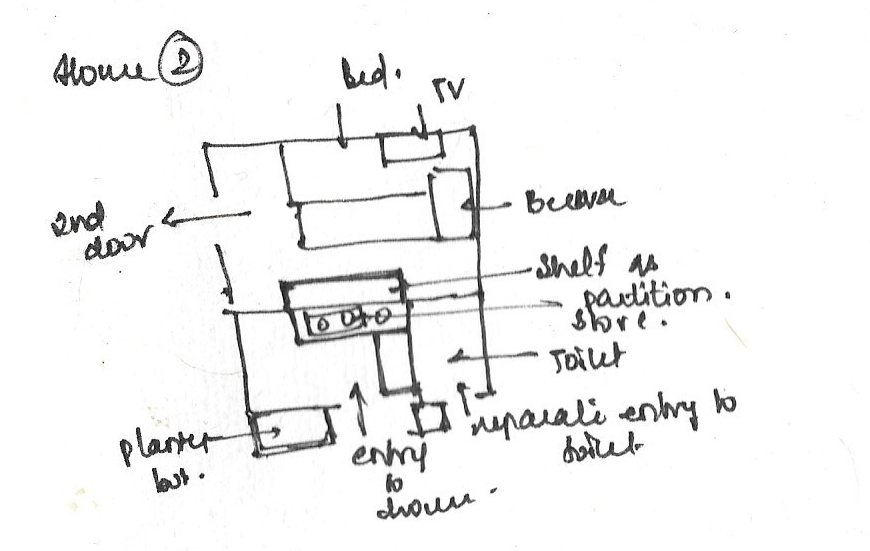 House 2
Bed.
TV
2nd
door
Bureau
Shelf as
partition.
Store.
Toilet
separate entry to
toilet
planter
box.
entry
to
house.